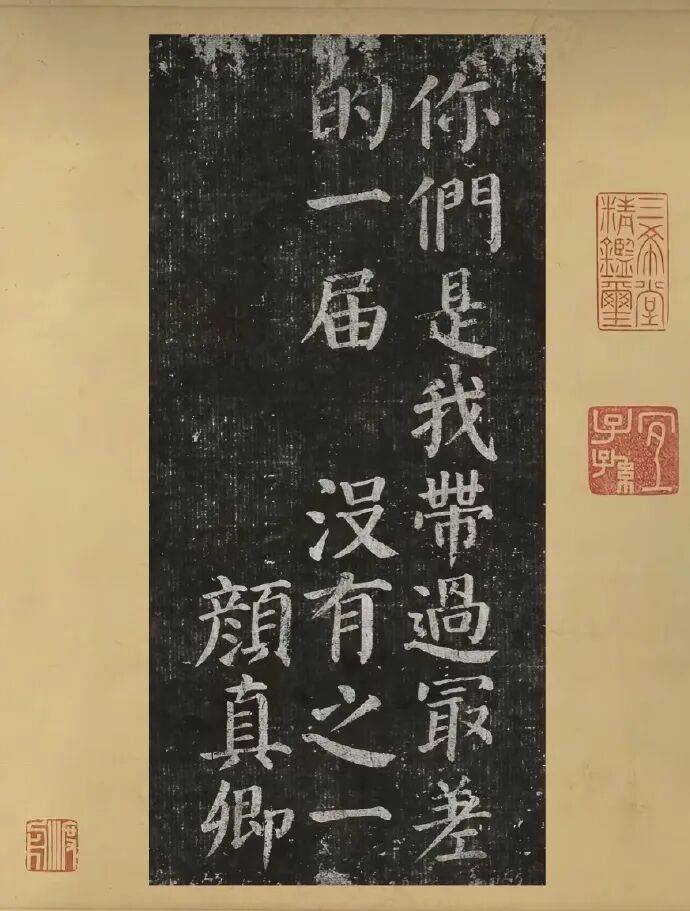 你們是我帶過冣差
的一届 没有之一
顔真卿
三希堂
精鑑璽
宜
子孫